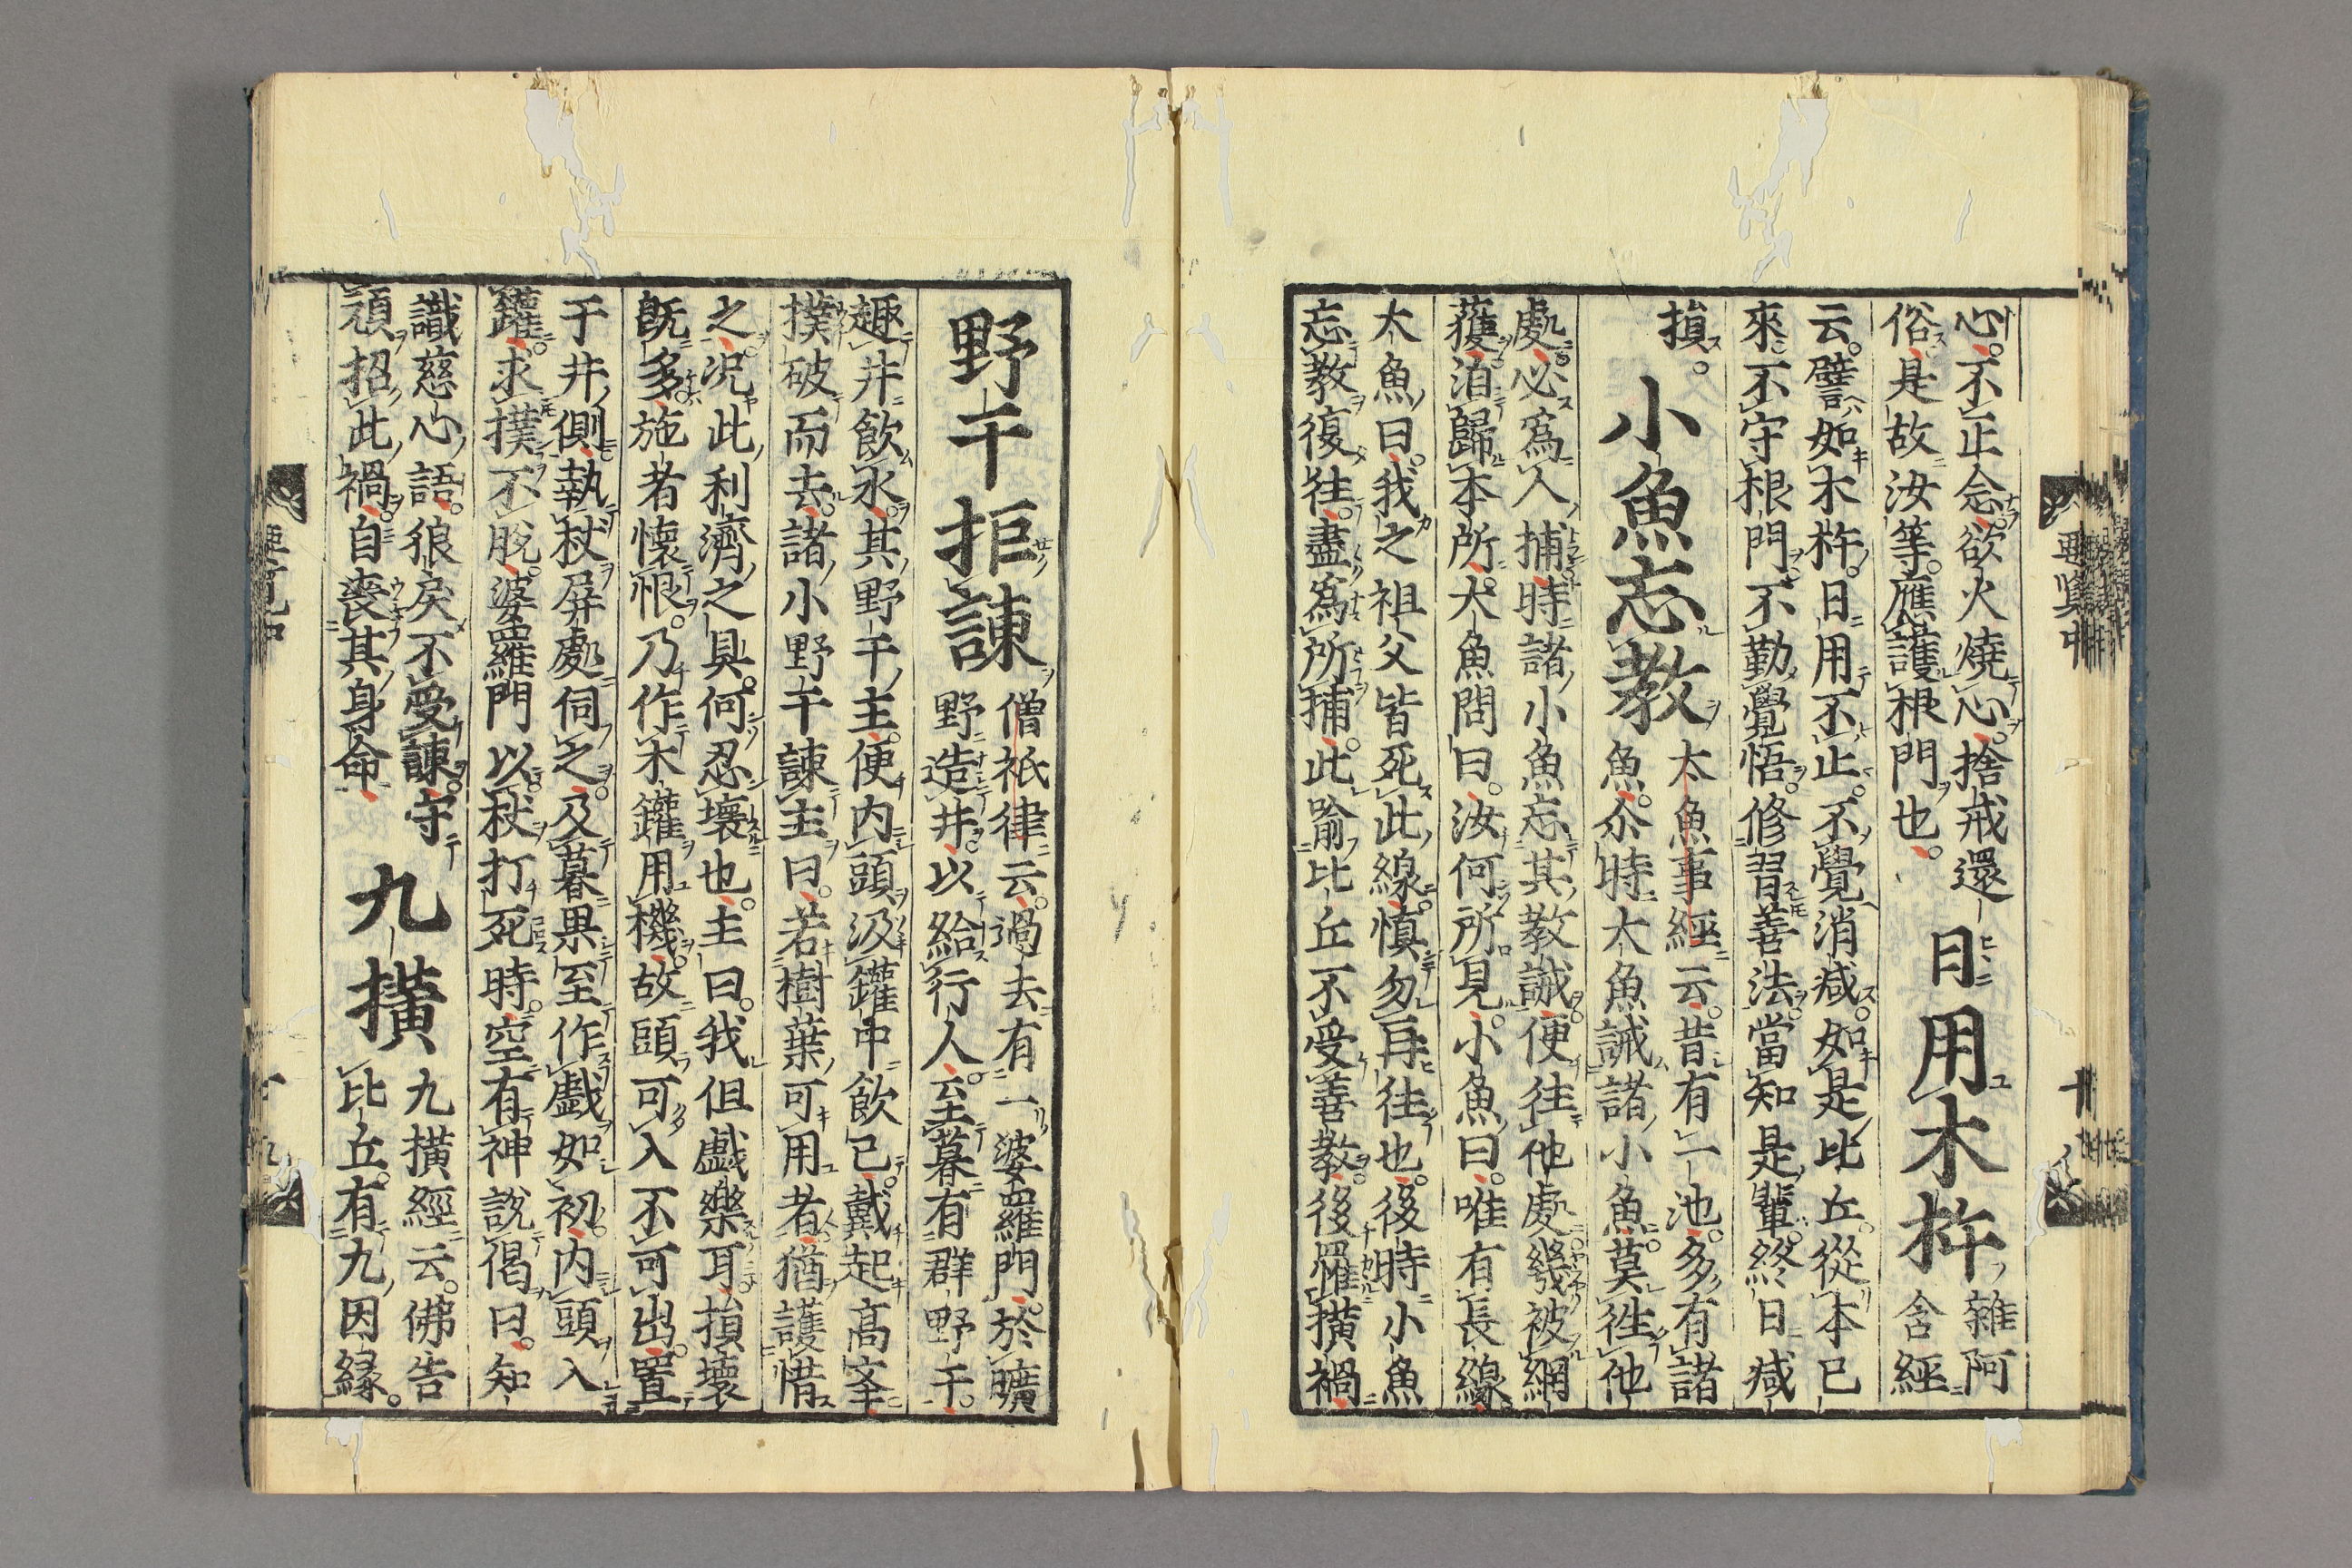 心。不止念。欲火燒心。捨戒還
俗。是故汝等。應護根門也。
日用木杵
雜阿
含經
云。譬如木杵。日用不止。不覺消减。如是比丘。從本已
來。不守根門。不勤覺悟。修習善法。當知是輩。終日减
損。
小魚忘教
大魚事經云。昔有一池。多有諸
魚。尒時大魚誡諸小魚。莫徃他
處。必爲人捕。時諸小魚忘其教誡。便往他處。幾被網
獲。洎歸本所。大魚問曰。汝何所見。小魚曰。唯有長線
大魚曰。我之祖父皆死此線。慎勿再往也。後時小魚
忘教復往。盡爲所捕。此喻比丘不受善教。後罹横禍
野干拒諫
僧祇律云。過去有一婆羅門。於曠
野造井。以給行人。至暮有群野干。
趣井飲水。其野干主。便内頭汲鑵中飲已。戴起高夆
撲破而去。諸小野干諫主曰。若樹葉可用者。猶護惜
之。况此利濟之具。何忍壞也。主曰。我但戲樂耳。損壞
旣多。施者懷恨。乃作木鑵。用機。故頭可入不可出。置
于井側。執杖屏處伺之。及暮果至。作戲如初。内頭入
鑵。求撲不脱。婆羅門以杖打死時。空有神說偈曰。知
識慈心語。狼戾不受諫。守
頑招此禍。自喪其身命
九横
九横經云。佛告
比丘。有九因縁。